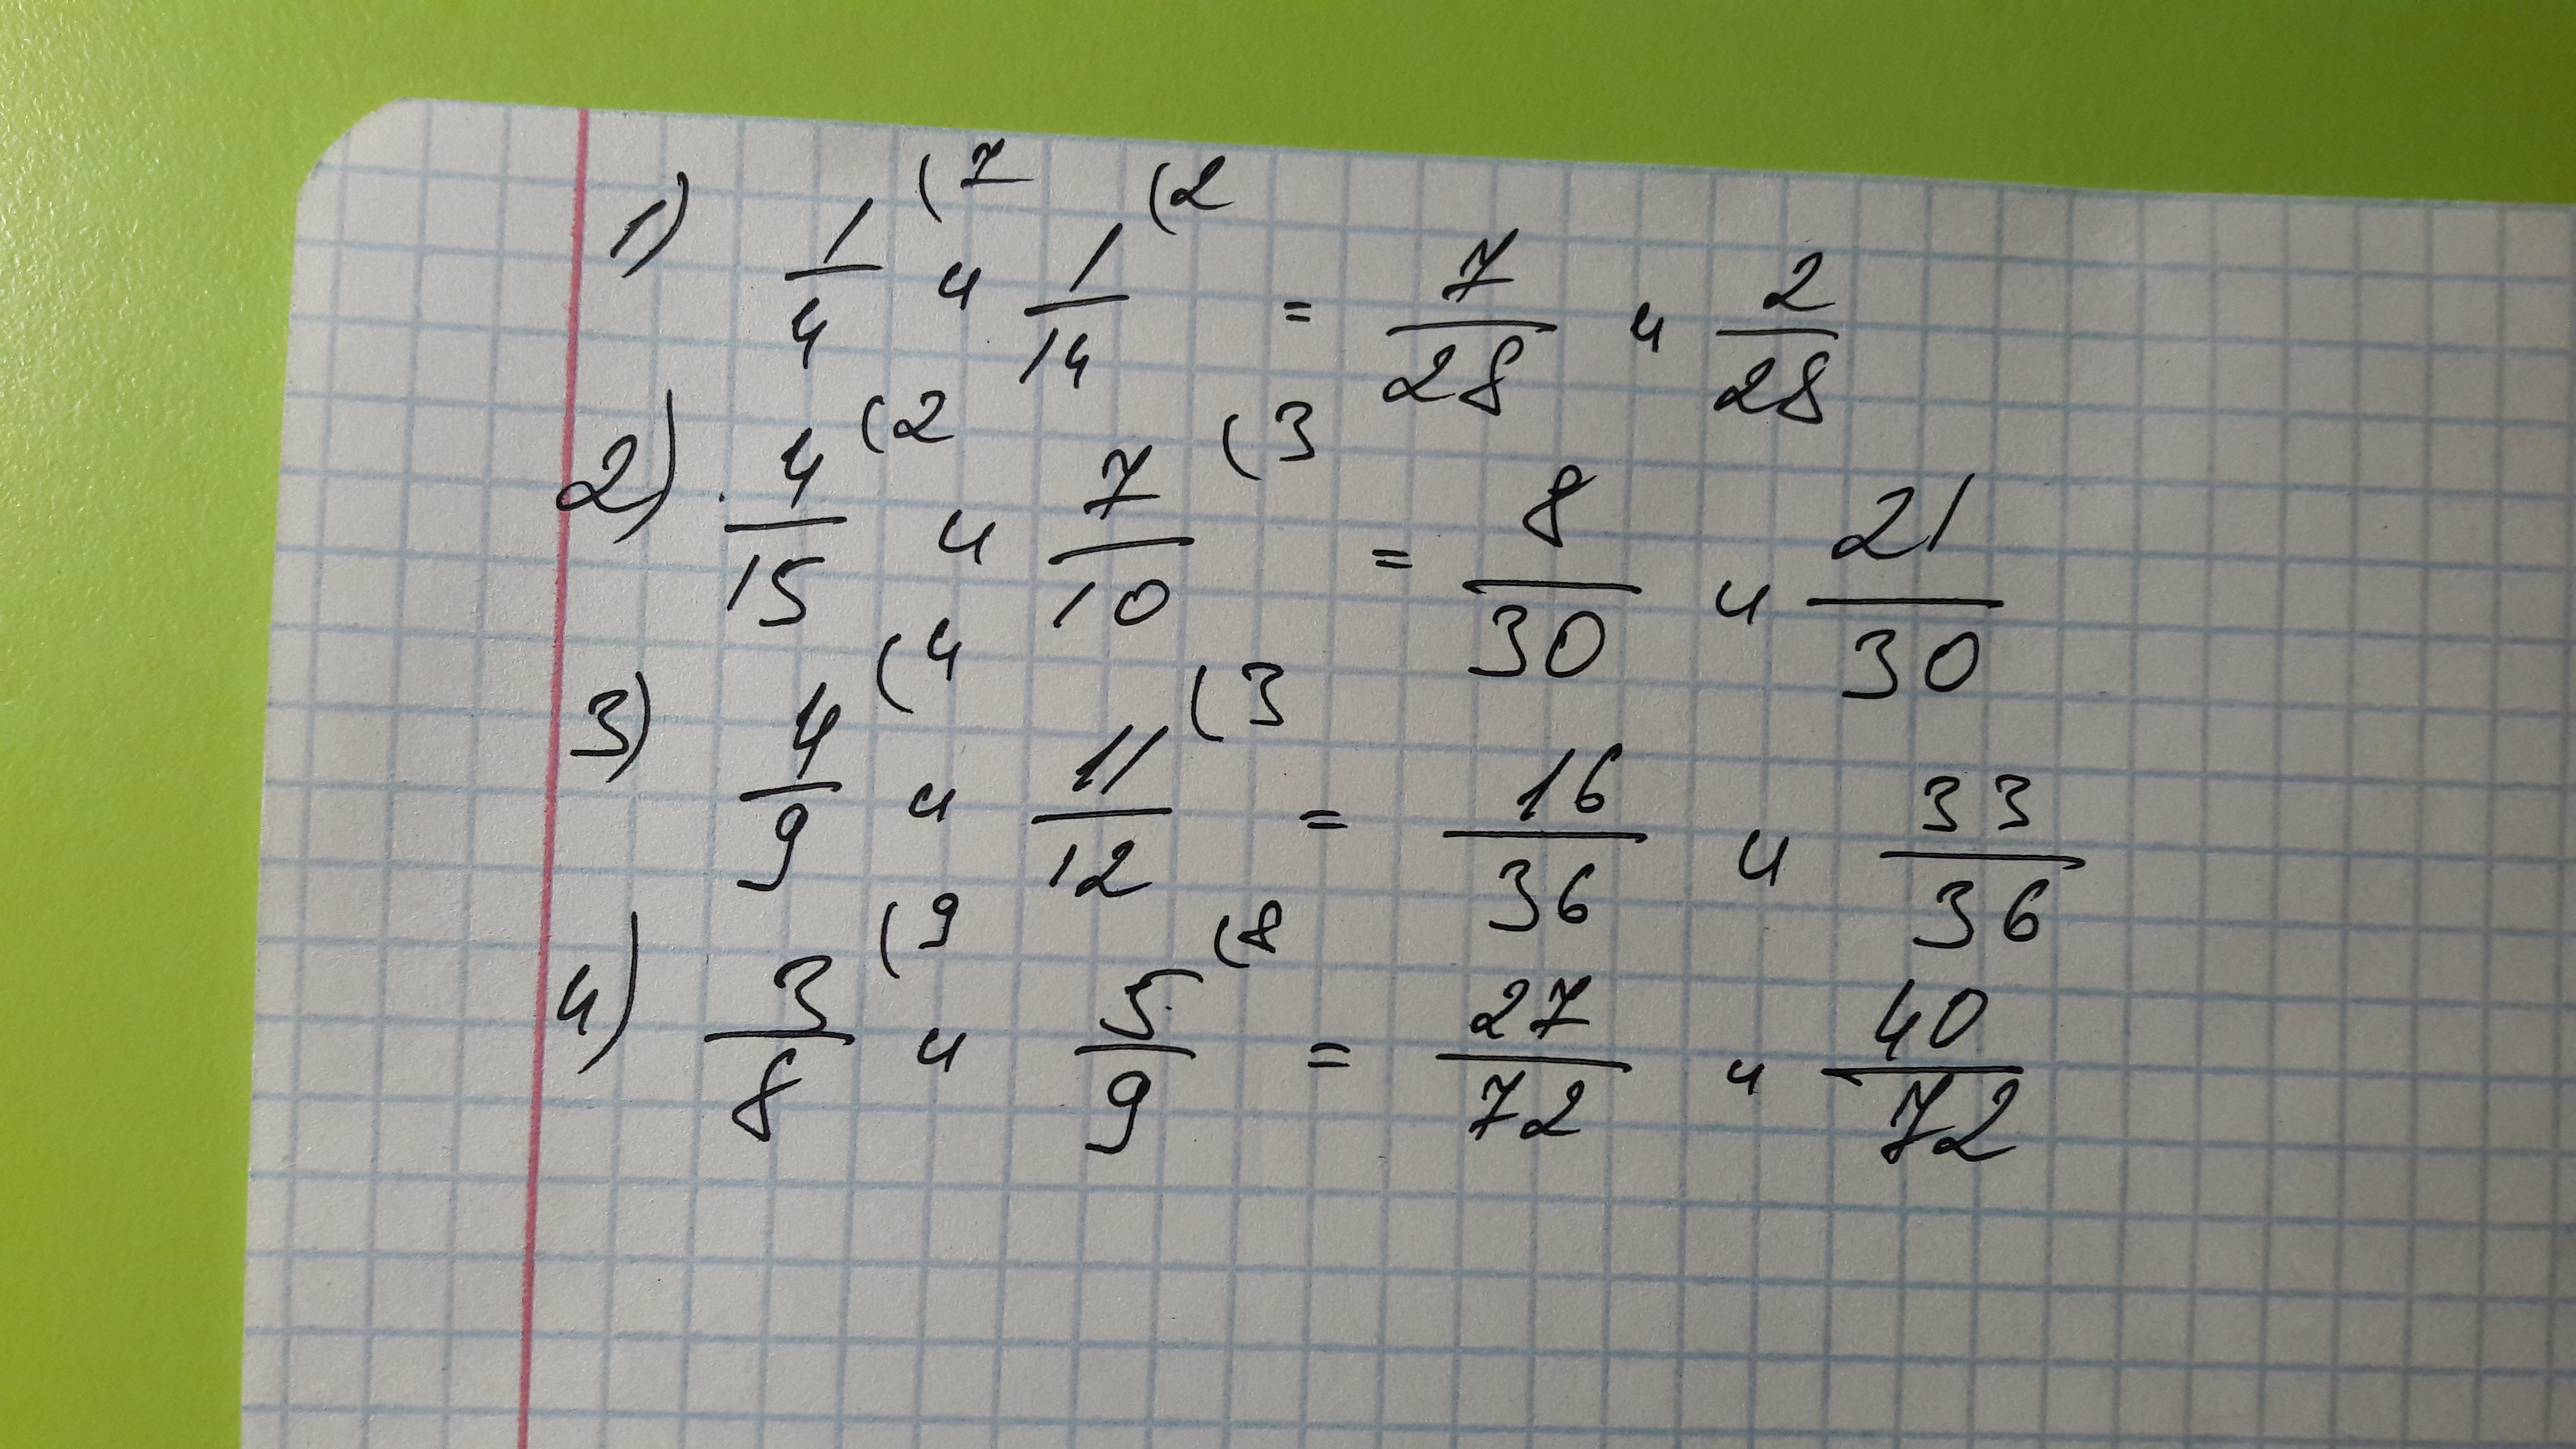 1) 1/4 (7 и 1/14 (2 = 7/28 и 2/28
2) 4/15 (2 и 7/10 (3 = 8/30 и 21/30
3) 4/9 (4 и 11/12 (3 = 16/36 и 33/36
4) 3/8 (9 и 5/9 (8 = 27/72 и 40/72